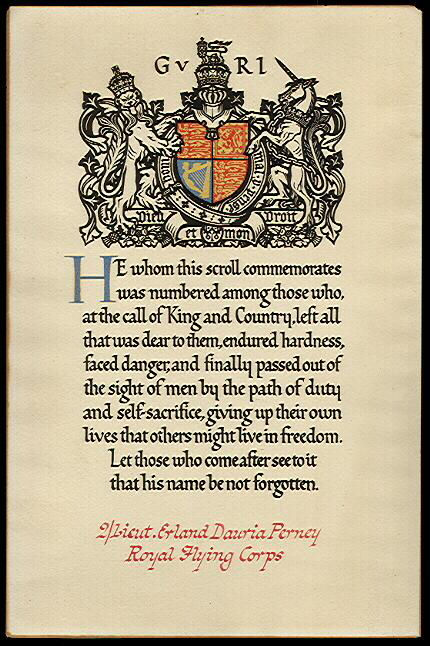 GVRI
Dieu et mon Droit
HE whom this scroll commemorates
was numbered among those who,
at the call of King and Country, left all
that was dear to them, endured hardness,
faced danger, and finally passed out of
the sight of men by the path of duty
and self-sacrifice, giving up their own
lives that others might live in freedom.
Let those who come after see to it
that his name be not forgotten.
2/Lieut. Erland Dauria Perney
Royal Flying Corps